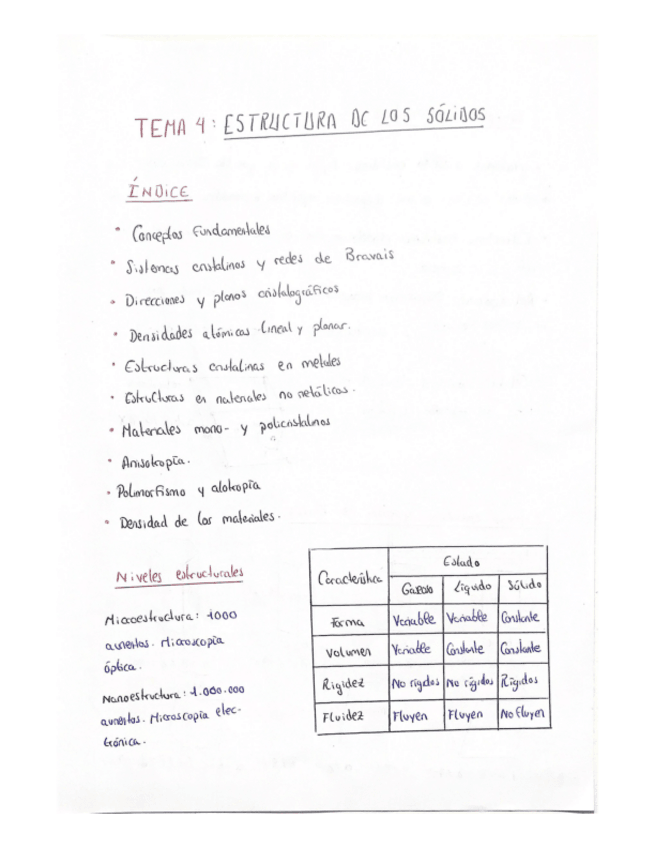 TEMA 4: ESTRUCTURA DE LOS SÓLIDOS
ÍNDICE
• Conceptos Fundamentales
• Sistemas cristalinos y redes de Bravais
• Direcciones y planos cristalográficos
• Densidades atómicas lineal y planar.
• Estructuras cristalinas en metales
• Estructuras en materiales no metálicos.
• Materiales mono- y policristalinos
• Anisotropía.
• Polimorfismo y alotropía
• Densidad de los materiales.
Niveles estructurales
Microestructura: 1000
aumentos. Microscopía
óptica.
Nanoestructura: 1.000.000
aumentos. Microscopía elec-
trónica.
Característica Estado
Gaseoso Líquido Sólido
Forma Variable Variable Constante
Volumen Variable Constante Constante
Rigidez No rígidos No rígidos Rígidos
Fluidez Fluyen Fluyen No fluyen